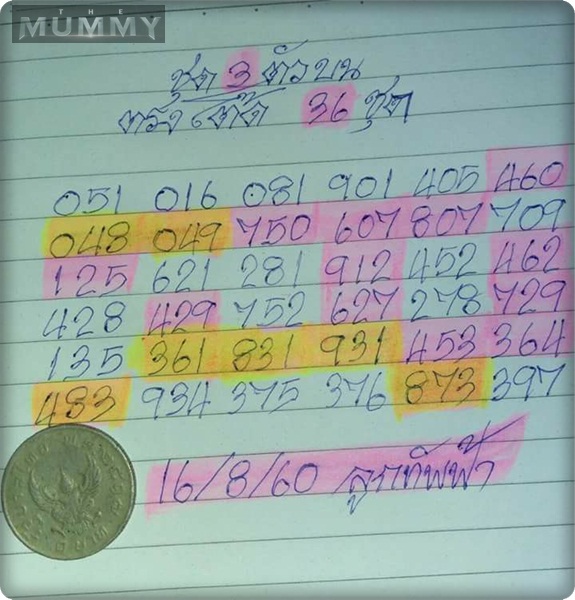 THE
MUMMY
ชุด 3 ตัวบน
ตรง โต๊ด 36 ชุด
051 016 081 901 405 460
048 049 750 607 807 709
125 621 281 912 452 462
428 429 752 627 278 729
135 361 831 931 453 364
483 934 375 376 873 397
16/8/60 ลูกทัพฟ้า